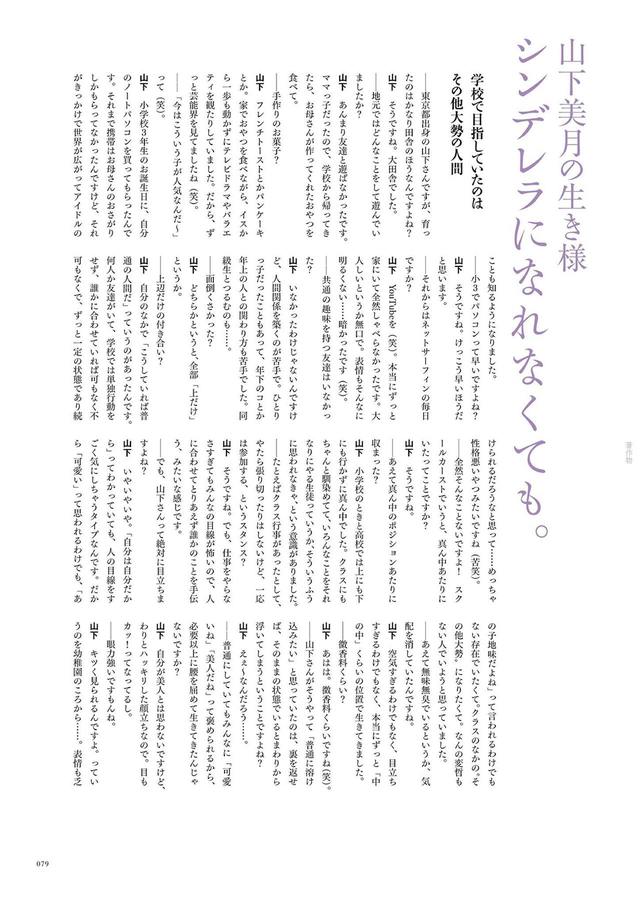 山下美月の生き様
シンデレラになれなくても。
学校で目指していたのは
その他大勢の人間
――東京都出身の山下さんですが、育っ
たのはかなり田舎のほうなんですよね?
山下　そうですね。大田舎でした。
――地元ではどんなことをして遊んでい
ましたか?
山下　あんまり友達と遊ばなかったです。
ママっ子だったので、学校から帰ってき
たら、お母さんが作ってくれたおやつを
食べて。
――手作りのお菓子?
山下　フレンチトーストとかパンケーキ
とか。家でおやつを食べながら、イスか
ら一歩も動かずにテレビドラマやバラエ
ティを観たりしていました。だから、ず
っと芸能界を見てましたね(笑)。
――「今はこういう子が人気なんだ〜」
って(笑)。
山下　小学校3年生のお誕生日に、自分
のノートパソコンを買ってもらったんで
す。それまで携帯はお母さんのおさがり
しかもらってなかったんですけど、それ
がきっかけで世界が広がってアイドルの
ことも知るようになりました。
――小3でパソコンって早いですよね?
山下　そうですね。けっこう早いほうだ
と思います。
――それからはネットサーフィンの毎日
ですか?
山下　YouTubeを(笑)。本当にずっと
家にいて全然しゃべらなかったです。大
人しいというか無口で。表情もそんなに
明るくない……暗かったです(笑)。
――共通の趣味を持つ友達はいなかっ
た?
山下　いなかったわけじゃないんですけ
ど、人間関係を築くのが苦手で。ひとり
っ子だったこともあって、年下のコとか
年上の人との関わり方も苦手でした。同
級生とつるむのも……。
――面倒くさかった?
山下　どちらかというと、全部「上だけ」
というか。
――上辺だけの付き合い?
山下　自分のなかで「こうしていれば普
通の人間だ」っていうのがあったんです。
何人か友達がいて、学校では単独行動を
せず、誰かに合わせていれば可もなく不
可もなくで、ずっと一定の状態であり続
けられるだろうなと思って……めっちゃ
性格悪いやつみたいですね(苦笑)。
――全然そんなことないですよ!　スク
ールカーストでいうと、真ん中あたりに
いたってことですか?
山下　そうですね。
――あえて真ん中のポジションあたりに
収まった?
山下　小学校のときと高校では上にも下
にも行かずに真ん中でした。クラスにも
ちゃんと馴染めてて、いろんなことをそれ
なりにやる生徒っていうか、そういうふう
に思われなきゃ、という意識がありました。
――たとえばクラス行事があったとして、
やたら張り切ったりはしないけど、一応
は参加する、というスタンス?
山下　そうですね。でも、仕事をやらな
さすぎてもみんなの目線が怖いので、人
に合わせてとりあえず誰かのことを手伝
う、みたいな感じです。
――でも、山下さんって絶対に目立ちま
すよね?
山下　いやいやいや。「自分は自分だか
ら」ってわかっていても、人の目線をす
ごく気にしちゃうタイプなんです。だか
ら「可愛い」って思われるわけでも、「あ
の子地味だよね」って言われるわけでも
ない存在でいたくて。クラスのなかの“そ
の他大勢”になりたくて。なんの変哲も
ない人でいようと思っていました。
――あえて無味無臭でいるというか、気
配を消していたんですね。
山下　空気すぎるわけでもなく、目立ち
すぎるわけでもなく、本当にずっと「中
の中」くらいの位置で生きてきました。
――微香料くらい?
山下　あはは。微香料くらいですね(笑)。
――山下さんがそうやって「普通に溶け
込みたい」と思っていたのは、裏を返せ
ば、そのままの状態でいるとまわりから
浮いてしまうということですよね?
山下　えぇ〜なんだろう……。
――普通にしていてもみんなに「可愛
いね」「美人だね」って褒められるから、
必要以上に腰を屈めて生きてきたんじゃ
ないですか?
山下　自分が美人とは思わないですけど、
わりとハッキリした顔立ちなので。目も
カッ!ってなってるし。
――眼力強いですもんね。
山下　キツく見られるんですよ。ってい
うのを幼稚園のころから……。表情も乏
著作物
079